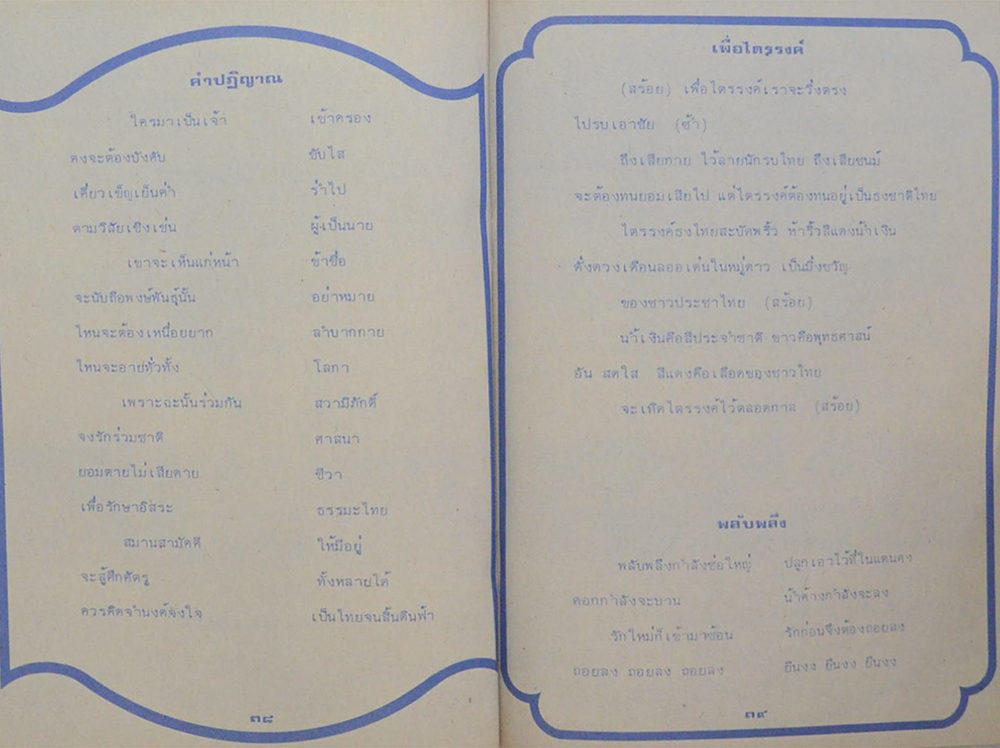 คำปฏิญาณ
ใครมาเป็นเจ้า เข้าครอง
คงจะต้องบังคับ ขับไส
เคี่ยวเข็ญเย็นค่ำ ร่ำไป
ตามวิสัยเชิงเช่น ผู้เป็นนาย
เขาจะเห็นแก่หน้า ข้าชื่อ
จะนับถือพงษ์พันธุ์นั้น อย่าหมาย
ไหนจะต้องเหนื่อยยาก ลำบากกาย
ไหนจะอายทั่วทั้ง โลกา
เพราะฉะนั้นร่วมกัน สวามิภักดิ์
จงรักร่วมชาติ ศาสนา
ยอมตายไม่เสียดาย ชีวา
เพื่อรักษาอิสระ ธรรมะไทย
สมานสามัคคี ให้มีอยู่
จะสู้ศึกศัตรู ทั้งหลายได้
ควรคิดจำนงค์จงใจ เป็นไทยจนสิ้นดินฟ้า
๓๘
เพื่อไตรรงค์
(สร้อย) เพื่อไตรรงค์เราจะวิ่งตรง
ไปรบเอาชัย (ซ้ำ)
ถึงเสียกาย ไว้ลายนักรบไทย ถึงเสียชนม์
จะต้องทนยอมเสียไป แต่ไตรรงค์ต้องทนอยู่เป็นธงชาติไทย
ไตรรงค์ธงไทยสะบัดพริ้ว ห้าริ้วสีแดงน้ำเงิน
ดั่งดวงเดือนลออเด่นในหมู่ดาว เป็นมิ่งขวัญ
ของชาวประชาไทย (สร้อย)
น้ำเงินคือสีประจำชาติ ขาวคือพุทธศาสน์
อัน สดใส สีแดงคือเลือดของชาวไทย
จะเทิดไตรรงค์ไว้ตลอดกาล (สร้อย)
พลับพลึง
พลับพลึงกำลังช่อใหญ่ ปลูกเอาไว้ที่ในแดนดง
ดอกกำลังจะบาน น้ำค้างกำลังจะลง
รักใหม่ก็เข้ามาซ้อน รักก่อนจึงต้องถอยลง
ถอยลง ถอยลง ถอยลง ยืนงง ยืนงง ยืนงง
๓๙